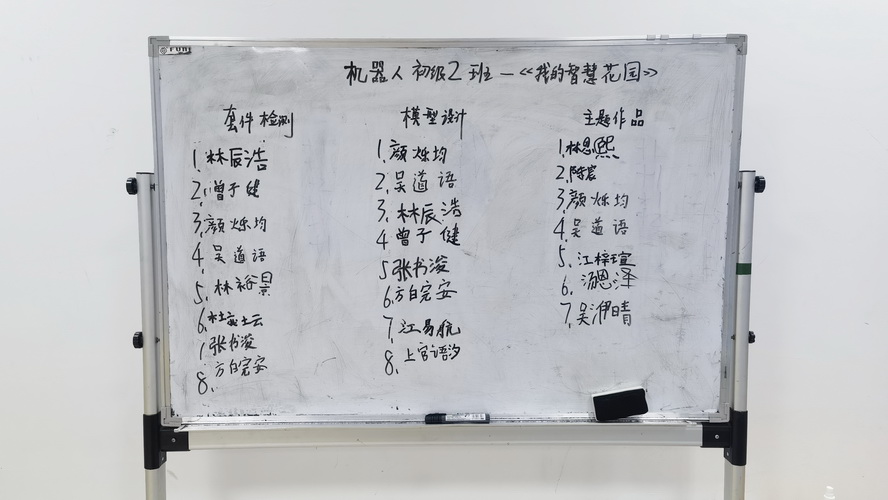 机器人初级2班—《我的智慧花园》
套件检测
1.林辰浩
2.曾子健
3.颜烁均
4.吴道语
5.林裕景
6.
1张书浚
8.方白完安
模型设计
1.颜烁均
2.吴道语
3.林辰浩
4.曾子健
5张书浚
6.方白完安
7.江易航
8.上官语汐
主题作品
1.林思熙
2.陈宸
3.颜烁均
4.吴道语
5.江梓瑄
6.汤恩泽
7.吴沛晴